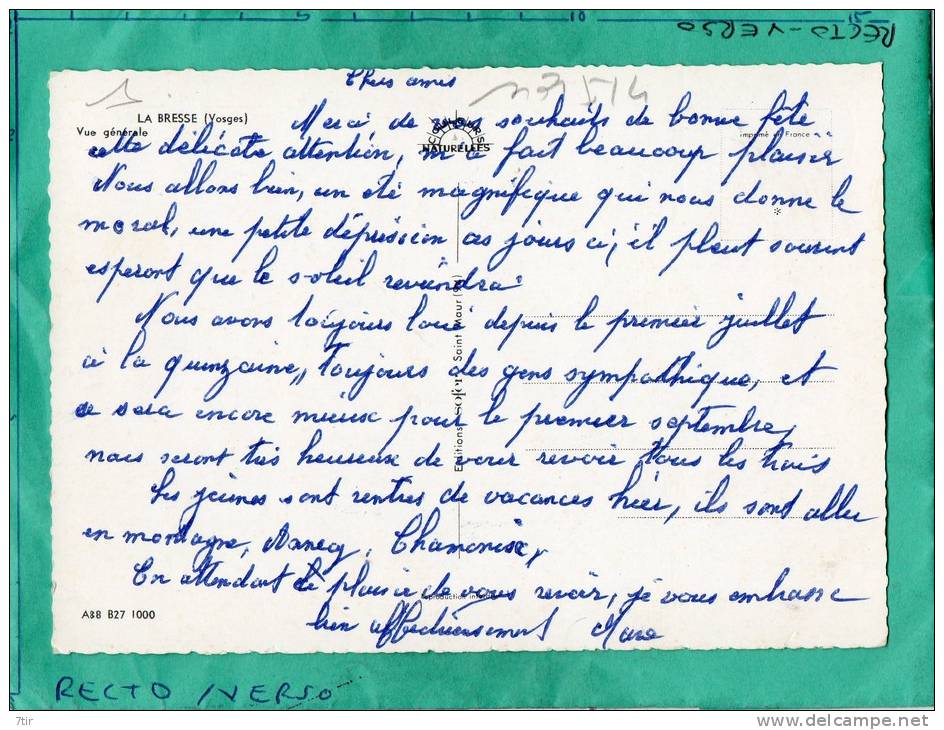 RECTO - VERSO
10
15
Chers amis
LA BRESSE (Vosges)
Vue générale
COULEURS NATURELLES
imprimé en France
Merci de vos souhaits de bonne fête
cette délicate attention, m'a fait beaucoup plaisir
Nous allons bien, un été magnifique qui nous donne le
moral, une petite dépression ces jours ci, il pleut souvent
esperont que le soleil reviendra
Nous avons toujours loué depuis le premier juillet
à la quinzaine, toujours des gens sympathique, et
ce sera encore mieux pour le premier septembre,
nous seront très heureuse de vous revoir tous les trois
Les jeunes sont rentrés de vacances hier, ils sont aller
en montagne, Annecy, Chamonix,
En attendant le plaisir de vous revoir, je vous embrasse
bien affectueusement
Editions SOFER Saint Maur
reproduction interdite
A88 B27 1000
RECTO / VERSO
7tir
www.delcampe.net